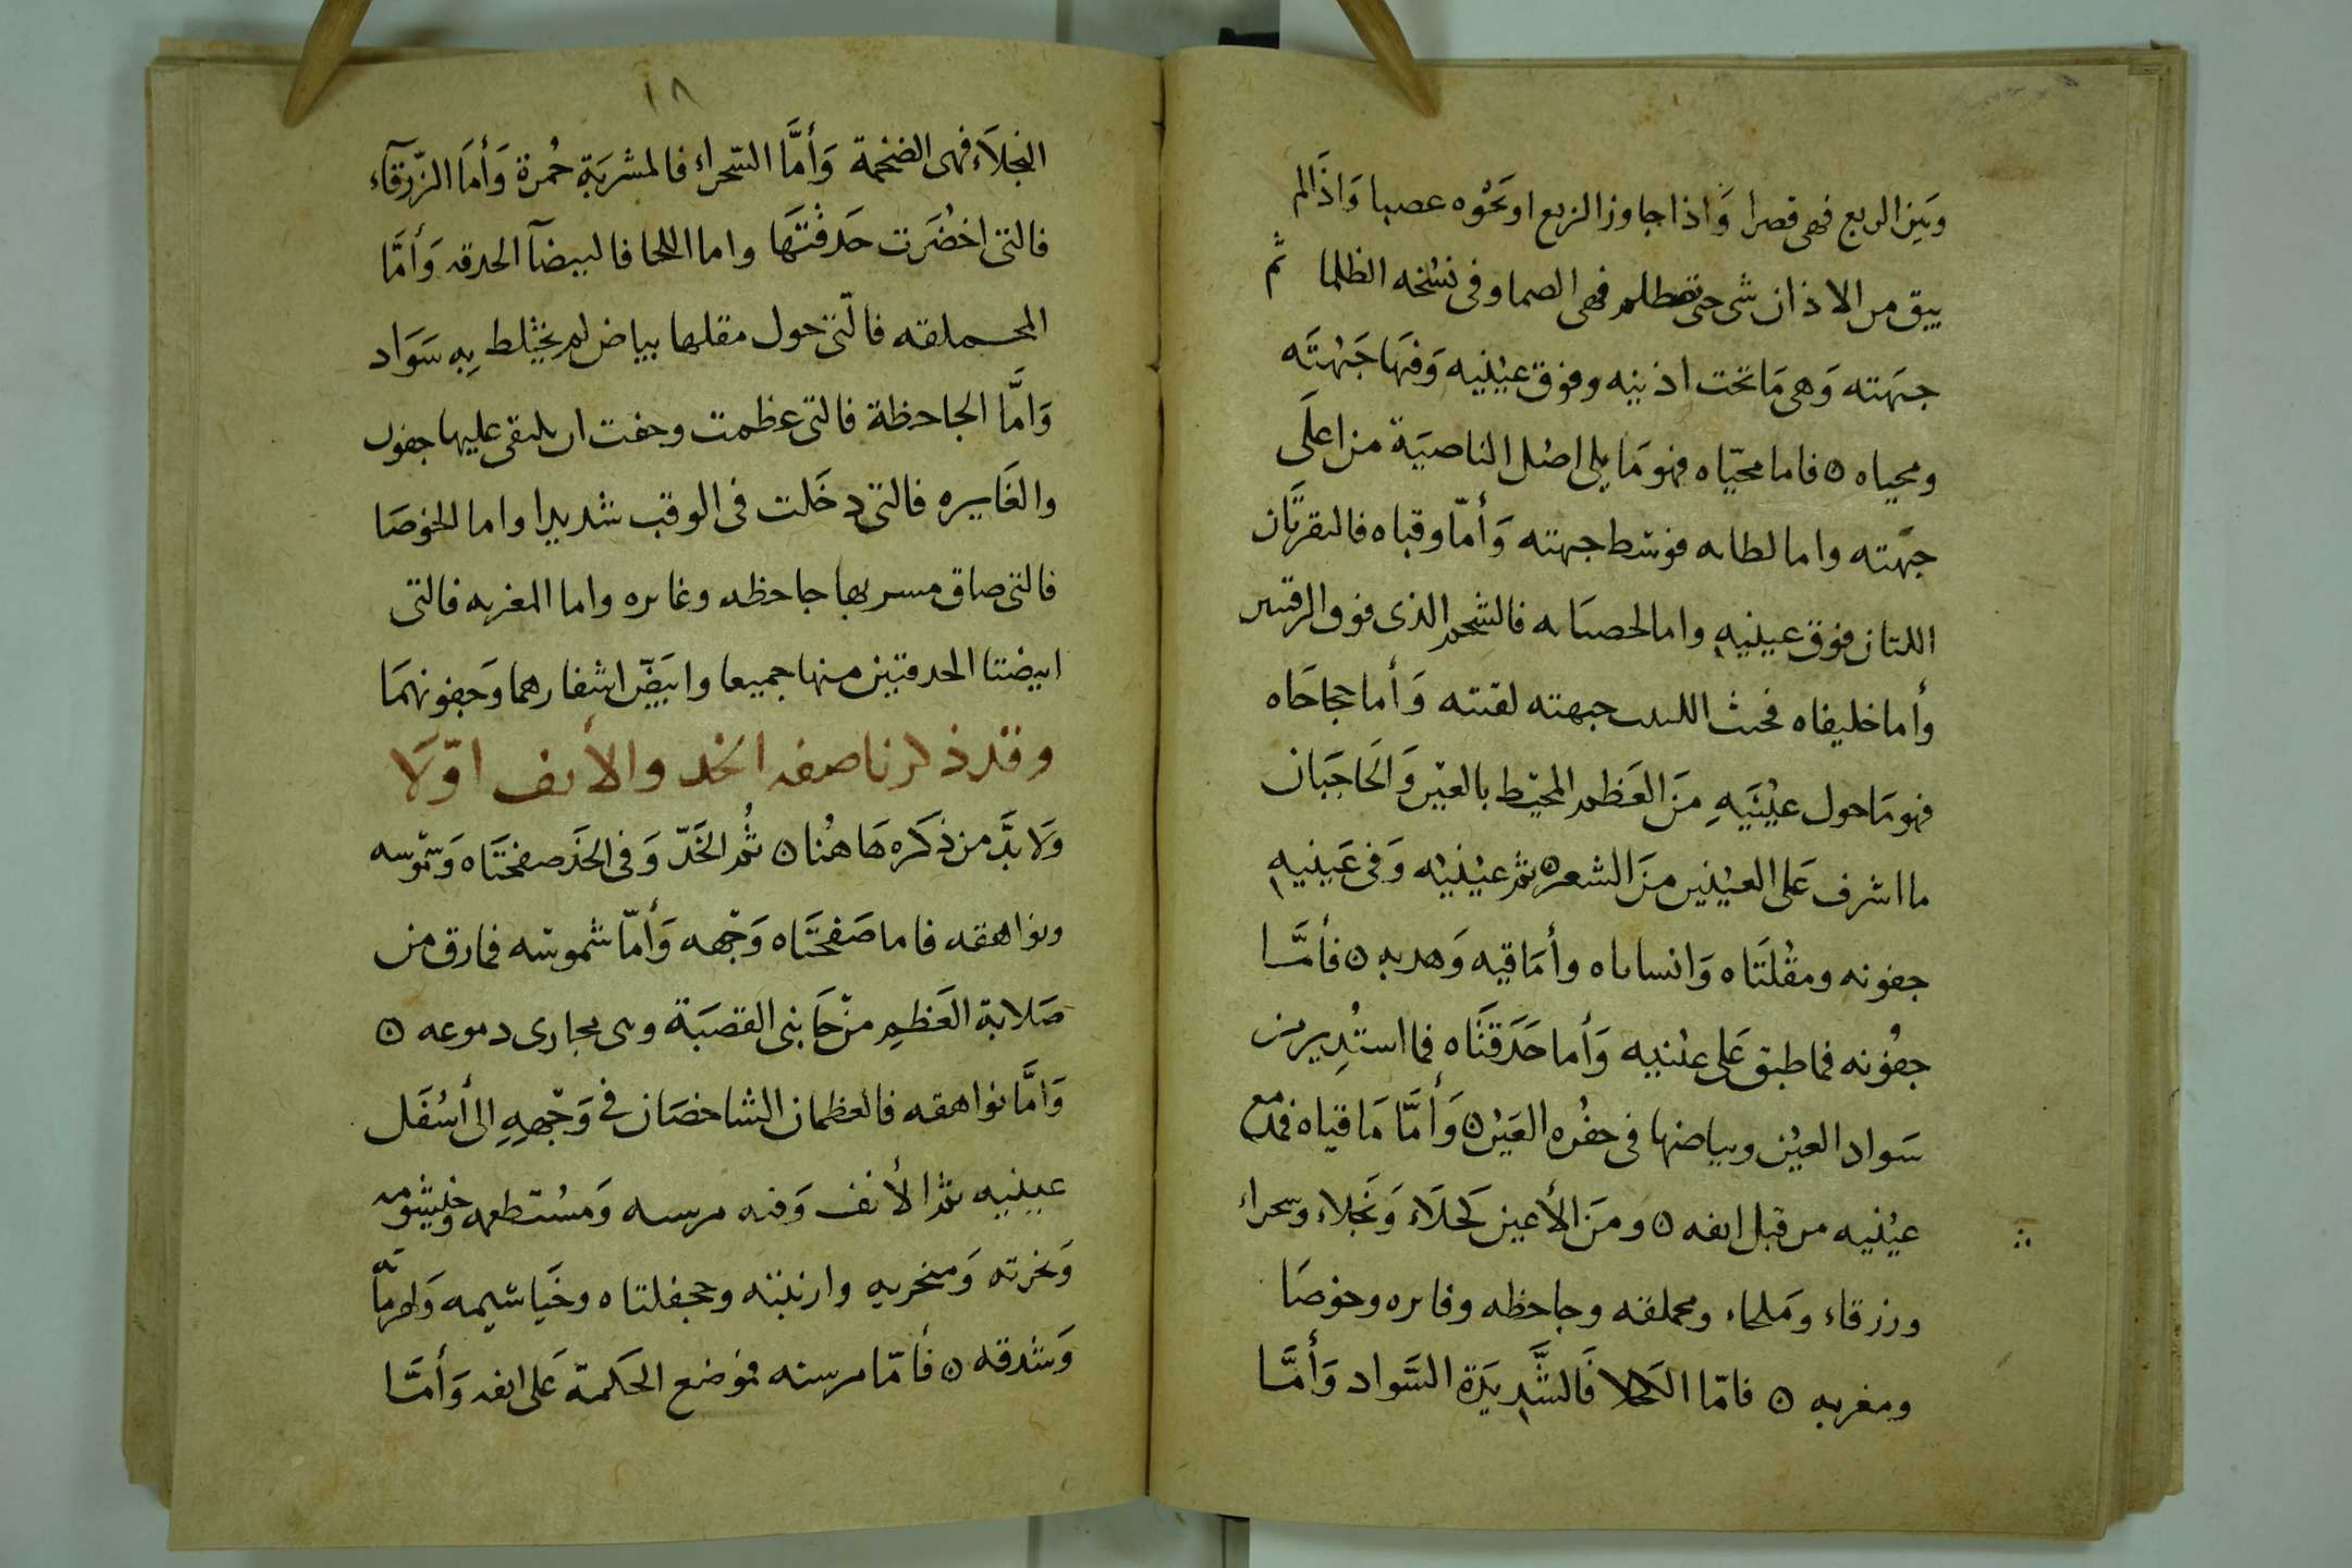 وبَين الربع فهى قصرا وَاذا جاوز الربع او نحَوُه عصبا وَاذَا لم
يبق من الاذان شى حتى تصطلم فهى الصما وفى نسُخه الظلما ثم
جبهَته وَهى مَا تحَت اذنيه وفوق عيْنيه وَفيهَا جَبهْتَه
ومحياه ۞ فاما محيّاه فهو مَا يلى اصْل الناصيَة من اعلَى
جبهَته واما لطاه فوسَط جبهته وَأمّا وقباه فالنقرتَان
اللتان فوق عينيه واما الحصاه فالشحم الذى فوق
وأما خليفاه فحيث جبهته لقتته وَأما حجاجَاه
فهو مَا حول عيْنَيهِ مَن العَظم المحيْط بالعيْن وَالحَاجبَان
ما اشرف عَلى العيْنين مَن الشعر ۞ ثم عيْنيْه وَفى عَينيه
جفونه ومقْلتَاه وَانساناه وأمَاقيه وَهدبه ۞ فأمَّا
جفُونه فما طبق عَلى عينيه وَأما حَدَقتَاه فما استُدير من
سَواد العيْن وبياضها فى حفُره العَيْن ۞ وَأمَّا مَاقياه فمدمع
عيْنيه من قبل انفه ۞ ومَن الأعين كَحلَاء وَنَجلاء وسحراء
وزرقاء وَملحاء ومحملقه وجاحظه وغايره وخوصَا
ومغربه ۞ فامّا الكحلا فَالشَّديَدَة السَّواد وَأمَّا
١٨
النجلَاء فهى الضخمة وَأمَّا السّحراء فالمشربَة حُمرة وَأمَا الزّرقآء
فالتى اخضُرَت حَدقْتَهَا واما اللحا فالبيضآ الحدقه وَأمَّا
المحملقه فالتّى حول مقلها بياض لم يختْلط بِه سَوَاد
وَامَّا الجاحظة فالتى عظمت وخفت ان يلتقى عليها جفون
والغَايره فالتى دخَلت فى الوقب شديدا واما الخوصَا
فالتى ضاق مسربها جاحظه وغايره واما المغربه فالتى
ابيضتا الحدقتين منها جميعا وابيَضّ اشفارهما وَجفونهمَا
وقد ذكرنا صفه الخد والأنف اوّلَا
وَلا بدَّ من ذكَره هَاهُنا ۞ ثُم الخَدّ وَفى الخَد صفحتَاه وَشموسه
ونواهقه فاما صَفحَتَاه وَجْهه وَأمّا شموسَه فمارق من
صَلابة العَظمِ من جَانبى القصبَة وهى مجارى دموعه ۞
وَامَّا نواهقه فالعظمان الشاخصَان فى وَجْههِ الى أسْفَل
عينيه ثم الأنف وَفيه مرسنه وَمسُتطعمه وخيْشومه
وَنخرته وَمنخريه وارنبته وجحفلتاه وخَياشيمه
وَشدقه ۞ فأمّا مرسنه موْضع الحَكمة عَلى انفه وَأمَّا